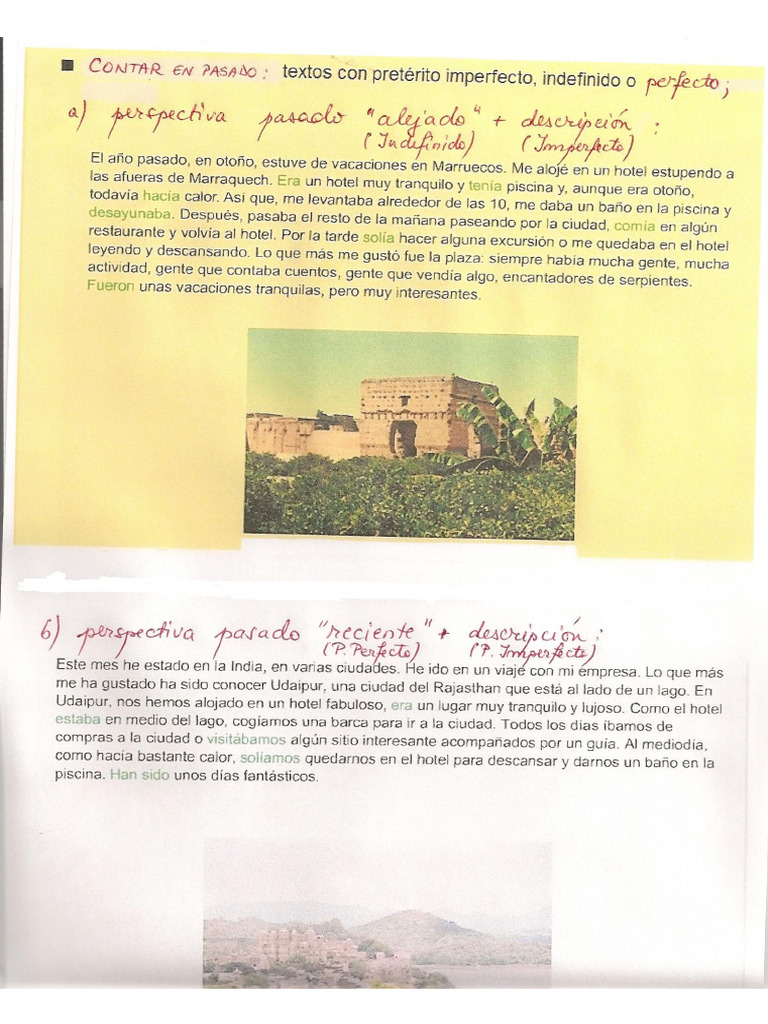 ■ CONTAR EN PASADO: textos con pretérito imperfecto, indefinido o perfecto;
a) perspectiva pasado "alejado" + descripción:
(Indefinido) (Imperfecto)
El año pasado, en otoño, estuve de vacaciones en Marruecos. Me alojé en un hotel estupendo a
las afueras de Marraquech. Era un hotel muy tranquilo y tenía piscina y, aunque era otoño,
todavía hacía calor. Así que, me levantaba alrededor de las 10, me daba un baño en la piscina y
desayunaba. Después, pasaba el resto de la mañana paseando por la ciudad, comía en algún
restaurante y volvía al hotel. Por la tarde solía hacer alguna excursión o me quedaba en el hotel
leyendo y descansando. Lo que más me gustó fue la plaza: siempre había mucha gente, mucha
actividad, gente que contaba cuentos, gente que vendía algo, encantadores de serpientes.
Fueron unas vacaciones tranquilas, pero muy interesantes.
b) perspectiva pasado "reciente" + descripción:
(P. Perfecto) (P. Imperfecto)
Este mes he estado en la India, en varias ciudades. He ido en un viaje con mi empresa. Lo que más
me ha gustado ha sido conocer Udaipur, una ciudad del Rajasthan que está al lado de un lago. En
Udaipur, nos hemos alojado en un hotel fabuloso, era un lugar muy tranquilo y lujoso. Como el hotel
estaba en medio del lago, cogíamos una barca para ir a la ciudad. Todos los días íbamos de
compras a la ciudad o visitábamos algún sitio interesante acompañados por un guía. Al mediodía,
como hacía bastante calor, solíamos quedarnos en el hotel para descansar y darnos un baño en la
piscina. Han sido unos días fantásticos.